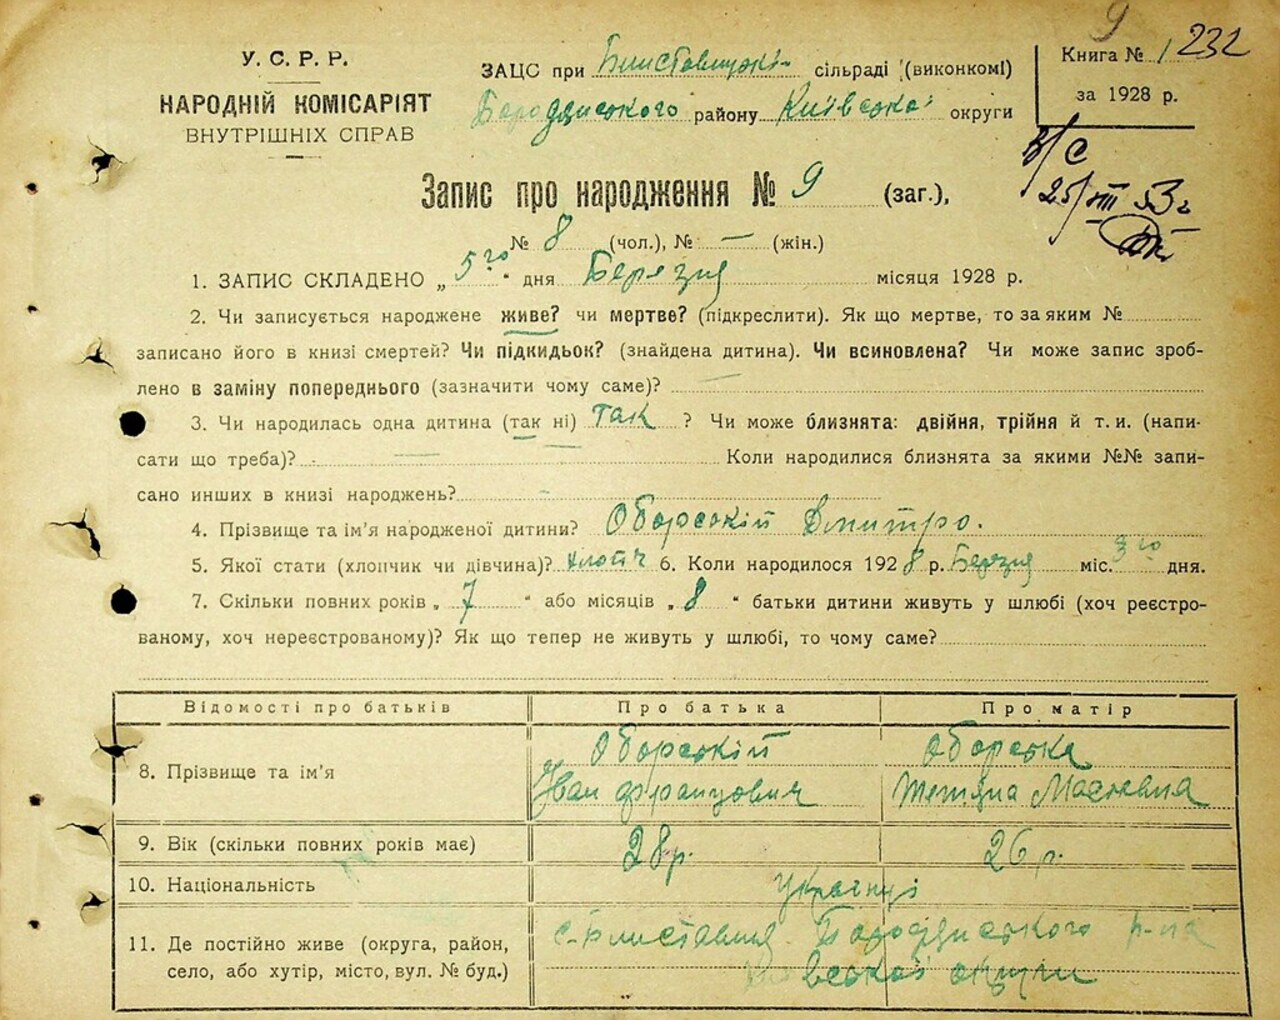 9 232
У. С. Р. Р.
НАРОДНІЙ КОМІСАРІЯТ
ВНУТРІШНІХ СПРАВ
ЗАЦС при Блиставицькі сільраді (виконкомі)
Бородянського району Київської округи
Книга № 1
за 1928 р.
В/С
25/VIII 53 г
Запис про народження № 9 (заг.),
№ 8 (чол.), № — (жін.)
1. ЗАПИС СКЛАДЕНО „ 5го " дня Березня місяця 1928 р.
2. Чи записується народжене живе? чи мертве? (підкреслити). Як що мертве, то за яким №
записано його в книзі смертей? Чи підкидьок? (знайдена дитина). Чи всиновлена? Чи може запис зроб-
лено в заміну попереднього (зазначити чому саме)? —
3. Чи народилась одна дитина (так ні) так ? Чи може близнята: двійня, трійня й т. и. (напи-
сати що треба)? — Коли народилися близнята за якими №№ запи-
сано инших в книзі народжень? -
4. Прізвище та ім'я народженої дитини? Оборський Дмитро.
5. Якої стати (хлопчик чи дівчина)? хлопч 6. Коли народилося 1928 р. Березня міс. 3го дня.
7. Скільки повних років „ 7 " або місяців „ 8 " батьки дитини живуть у шлюбі (хоч реєстро-
ваному, хоч нереєстрованому)? Як що тепер не живуть у шлюбі, то чому саме?
Відомості про батьків Про батька Про матір
8. Прізвище та ім'я Оборський Іван Францович Оборська Тетяна
9. Вік (скільки повних років має) 28 р. 26 р.
10. Національність українці
11. Де постійно живе (округа, район, с. Блиставиця Бородянського р-на
село, або хутір, місто, вул. № буд.) Київської округи